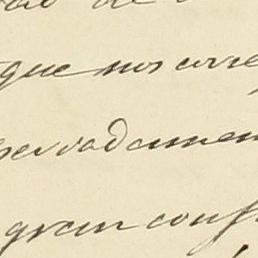 de
que nos corre
servadamen
gran conf